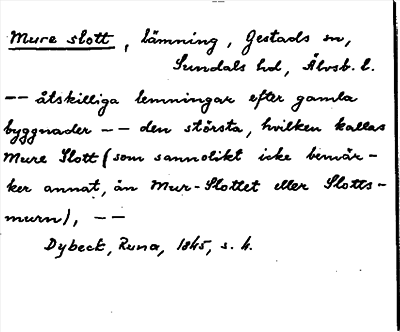 Mure slott, lämning, Gestads sn,
Sundals hd, Älvsb. l.
-- åtskilliga lemningar efter gamla
byggnader -- den största, hvilken kallas
Mure Slott (som sannolikt icke bemär-
ker annat, än Mur-Slottet eller Slotts-
murn), --
Dybeck, Runa, 1845, s. 4.